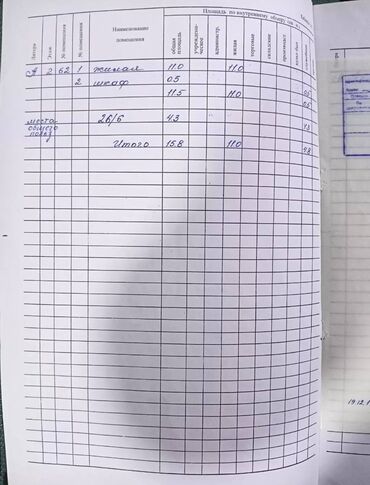 Площадь по внутреннему обмеру
Литера Этаж № помещения № помещения Наименование помещения общая площадь учрежденческое администр. жилая торговая складские производст.
А 2 62 1 жилая 11.0 11.0
2 шкаф 0.5 0.5
11.5 11.0 0.5
места общего польз 26/6 4.3 4.3
Итого 15.8 11.0 4.8
19.12.1